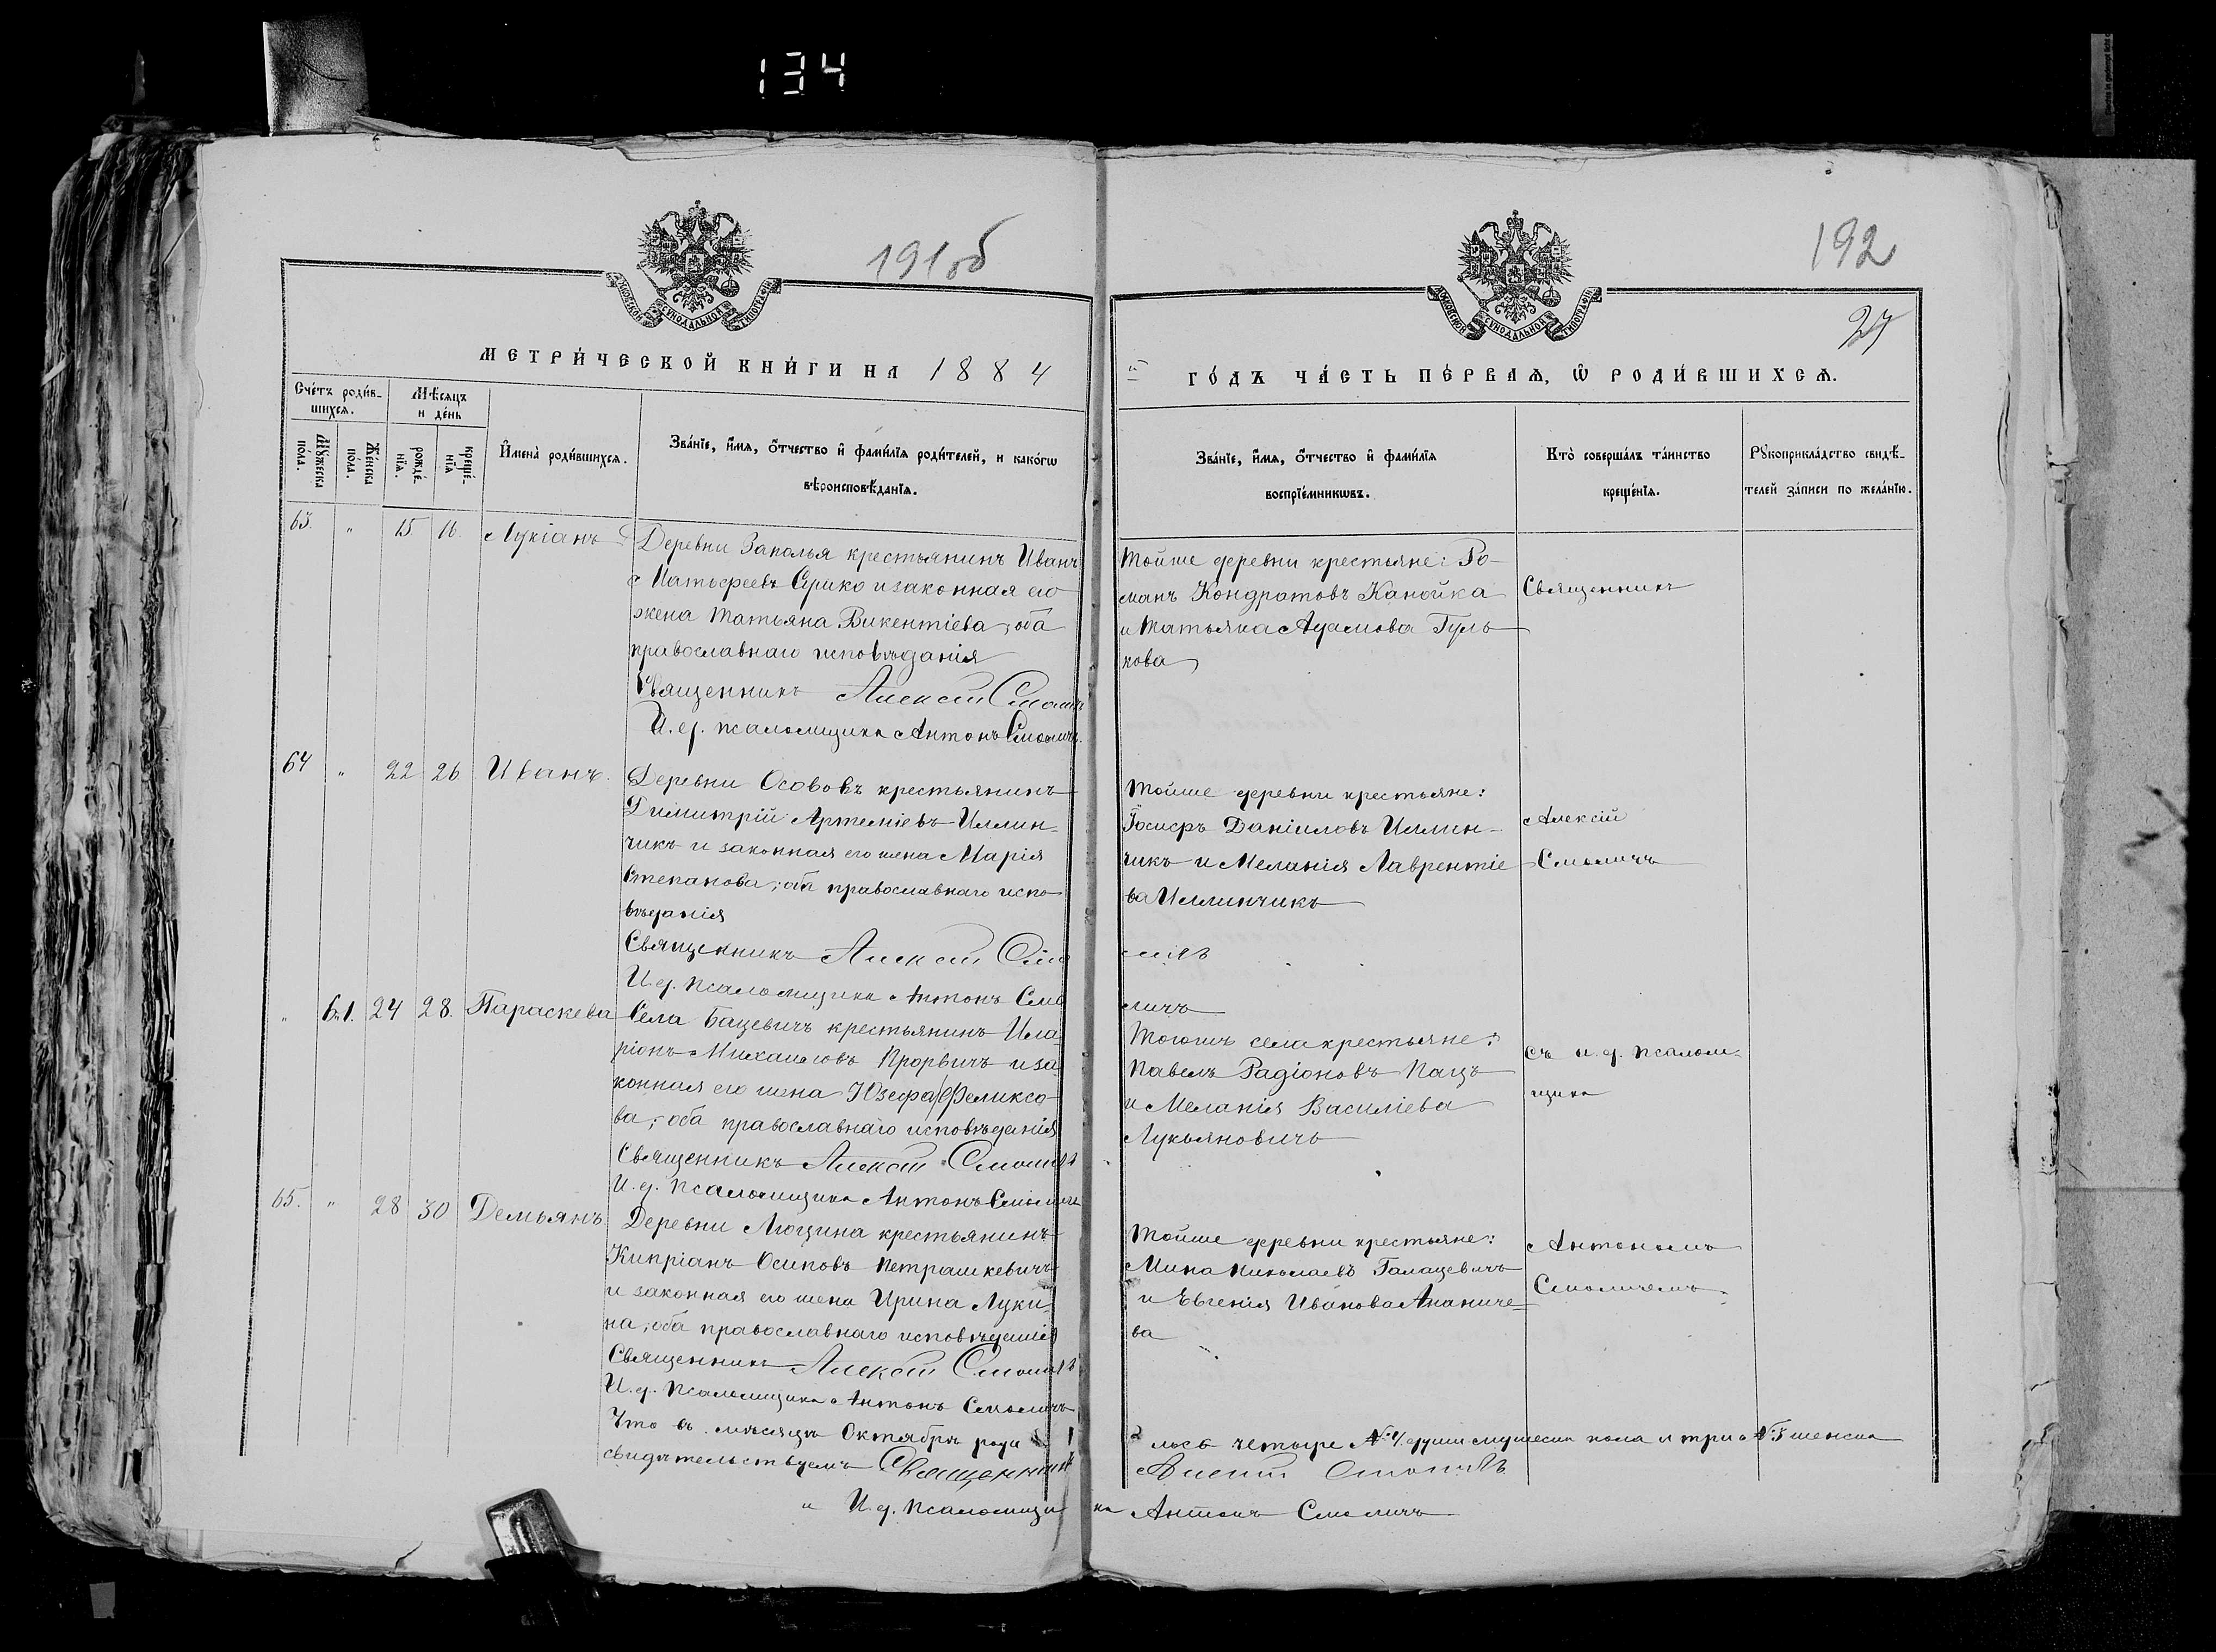 134
191об
192
27
МОСКОВСКОЙ СѴНОДАЛЬНОЙ ТИПОГРАФІИ
МОСКОВСКОЙ СѴНОДАЛЬНОЙ ТИПОГРАФІИ
МЕТРИ́ЧЕСКОЙ КНИ́ГИ НА 1884
й ГО́ДЪ ЧА́СТЬ ПЕ́РВАѦ, Ѡ҆ РОДИ́ВШИХСѦ.
Сче́тъ роди́в-
шихсѧ.
Мѣ́сѧцъ
и де́нь
Мꙋ́жеска
по́ла.
Же́нска
по́ла.
рожде́-
нїѧ.
креще́-
нїѧ
И҆мена̀ роди́вшихсѧ.
Зва́нїе, и҆́мѧ, ѻ҆́тчество и҆ фами́лїѧ роди́телей, и како́гѡ
вѣроисповѣ́данїѧ.
Зва́нїе, и҆́мѧ, ѻ҆́тчество и҆ фами́лїѧ
воспрїе́мникѡвъ.
Кто̀ соверша́лъ та́инство
креще́нїѧ.
Рꙋкоприкла́дство свидѣ́-
телей за́писи по жела́нїю.
63. " 15 16. Лукіанъ
Деревни Заполья крестьянинъ Иванъ
Матѳеевъ и законная его
жена Татьяна Викентіева, оба
православнаго исповѣданія
Священникъ Алексій Смоличъ
И. д. псаломщика Антонъ Смоличъ.
Тойже деревни крестьяне: Ро-
манъ Кондратовъ Канойка
и Татьяна Адамова Гуль
кова
Священникъ
64 " 22 26 Иванъ.
Деревни Осововъ крестьянинъ
Димитрій Артеміевъ Иллин-
чикъ и законная его жена Марія
Степанова; оба православнаго испо
вѣданія
Священникъ Алексій Смоличъ
И. д. псаломщика Антонъ Смоличъ
Тойже деревни крестьяне:
Іосифъ Даніиловъ Иллин-
чикъ и Меланія Лаврентіе
ва Иллинчикъ
Алексій
Смоличъ
" 61. 24 28. Параскева
Села Бацевичъ крестьянинъ Ила-
ріонъ Михаиловъ Прорвичъ и за
конная его жена Юзефа Феликсо-
ва; оба православнаго исповѣданія
Священникъ Алексій Смоличъ
И. д. псаломщика Антонъ Смоличъ
Тогожъ села крестьяне:
Павелъ Радіоновъ Пацъ
и Меланія Василіева
Лукьяновичъ
съ и. д. псалом-
щика
65. " 28 30 Демьянъ
Деревни Люцина крестьянинъ
Кипріанъ Осиповъ Петрашкевичъ
и законная его жена Ирина Луки-
на, оба православнаго исповѣданія
Священникъ Алексій Смоличъ
И. д. псаломщика Антонъ Смоличъ
Тойже деревни крестьяне:
Мина Николаевъ Галацевичъ
и Евгенія Иванова Ананиче-
ва
Антономъ
Смоличемъ.
Что въ мѣсяцѣ Октябрѣ роди лось четыре №4 души мужеска пола и три №3 женска
свидѣтельствуемъ Священникъ Алексій Смоличъ
и И. д. псаломщи ка Антонъ Смоличъ